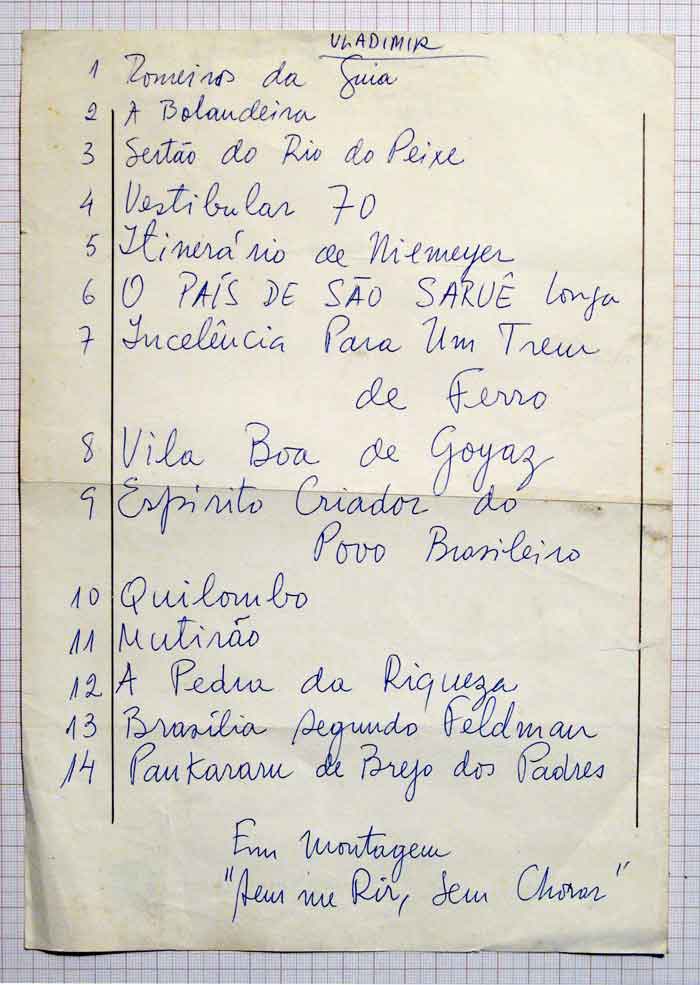 VLADIMIR
1 Romeiros da Guia
2 A Bolandeira
3 Sertão do Rio do Peixe
4 Vestibular 70
5 Itinerário de Niemeyer
6 O PAÍS DE SÃO SARUÊ longa
7 Incelência Para Um Trem
de Ferro
8 Vila Boa de Goyaz
9 Espírito Criador do
Povo Brasileiro
10 Quilombo
11 Mutirão
12 A Pedra da Riqueza
13 Brasília segundo Feldman
14 Pankararu de Brejo dos Padres
Em montagem
"Sem me Rir, Sem Chorar"